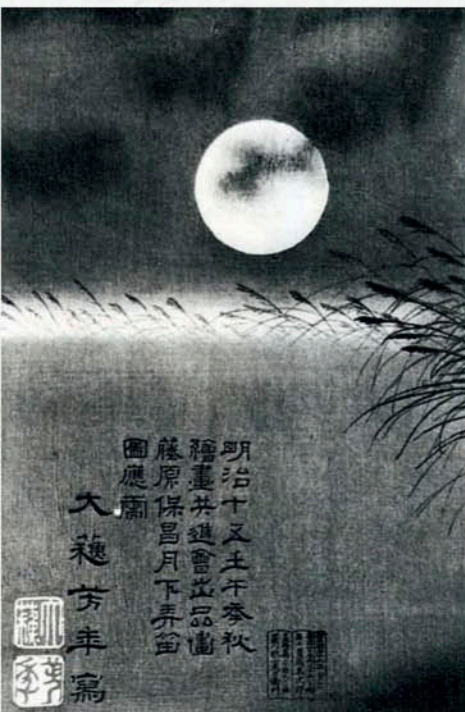 明治十五壬午季秋
繪畫共進會出品畫
藤原保昌月下弄笛
圖應需
大蘓芳年寫
大蘓
芳年